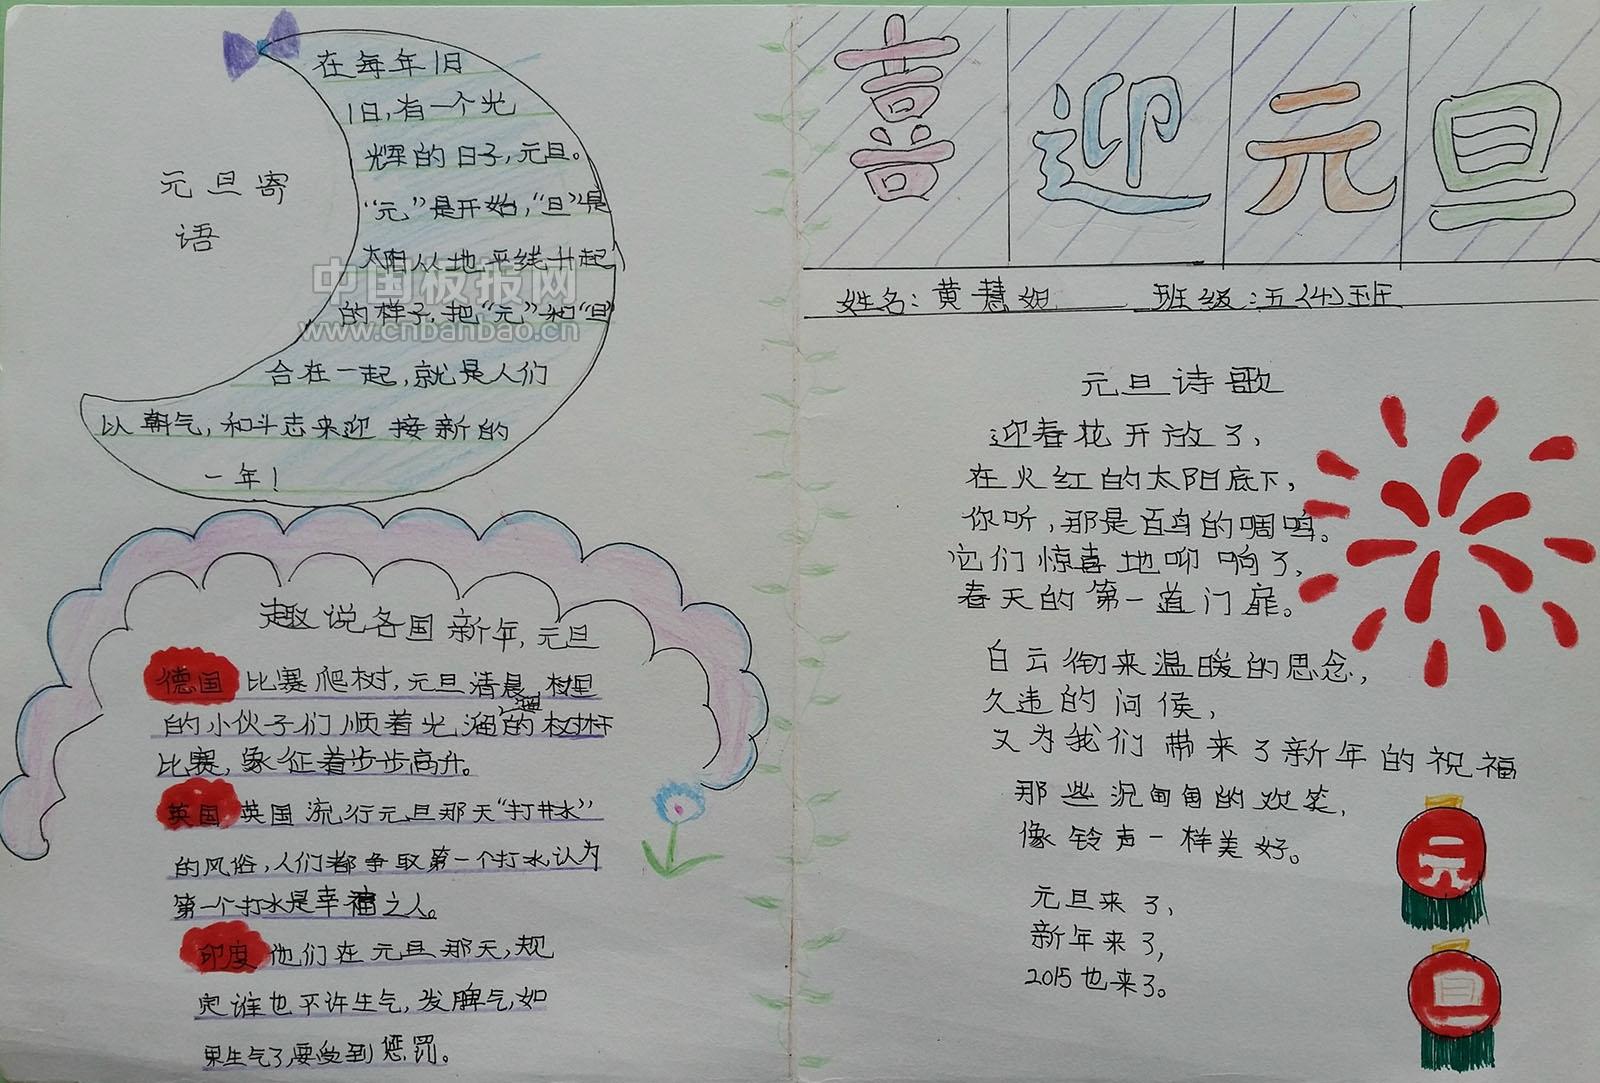 元旦寄
语
在每年1月
1日,有一个光
辉的日子,元旦。
“元”是开始,“旦”是
太阳从地平线升起
的样子,把“元”和“旦”
合在一起,就是人们
以朝气,和斗志来迎接新的
一年!
中国板报网
www.cnbanbao.cn
趣说各国新年,元旦
德国 比赛爬树,元旦清晨,村里
的小伙子们顺着光溜溜的树杆
比赛,象征着步步高升。
英国 英国流行元旦那天“打井水”
的风俗,人们都争取第一个打水,认为
第一个打水是幸福之人。
印度 他们在元旦那天,规
定谁也不许生气,发脾气,如
果生气了,要受到惩罚。
喜迎元旦
姓名:黄慧妲 班级:五(4)班
元旦诗歌
迎春花开放了,
在火红的太阳底下,
你听,那是百鸟的啁鸣。
它们惊喜地叩响了,
春天的第一道门扉。
白云衔来温暖的思念,
久违的问侯,
又为我们带来了新年的祝福
那些泥甸甸的欢笑,
像铃声一样美好。
元旦来了,
新年来了,
2015也来了。
元
旦